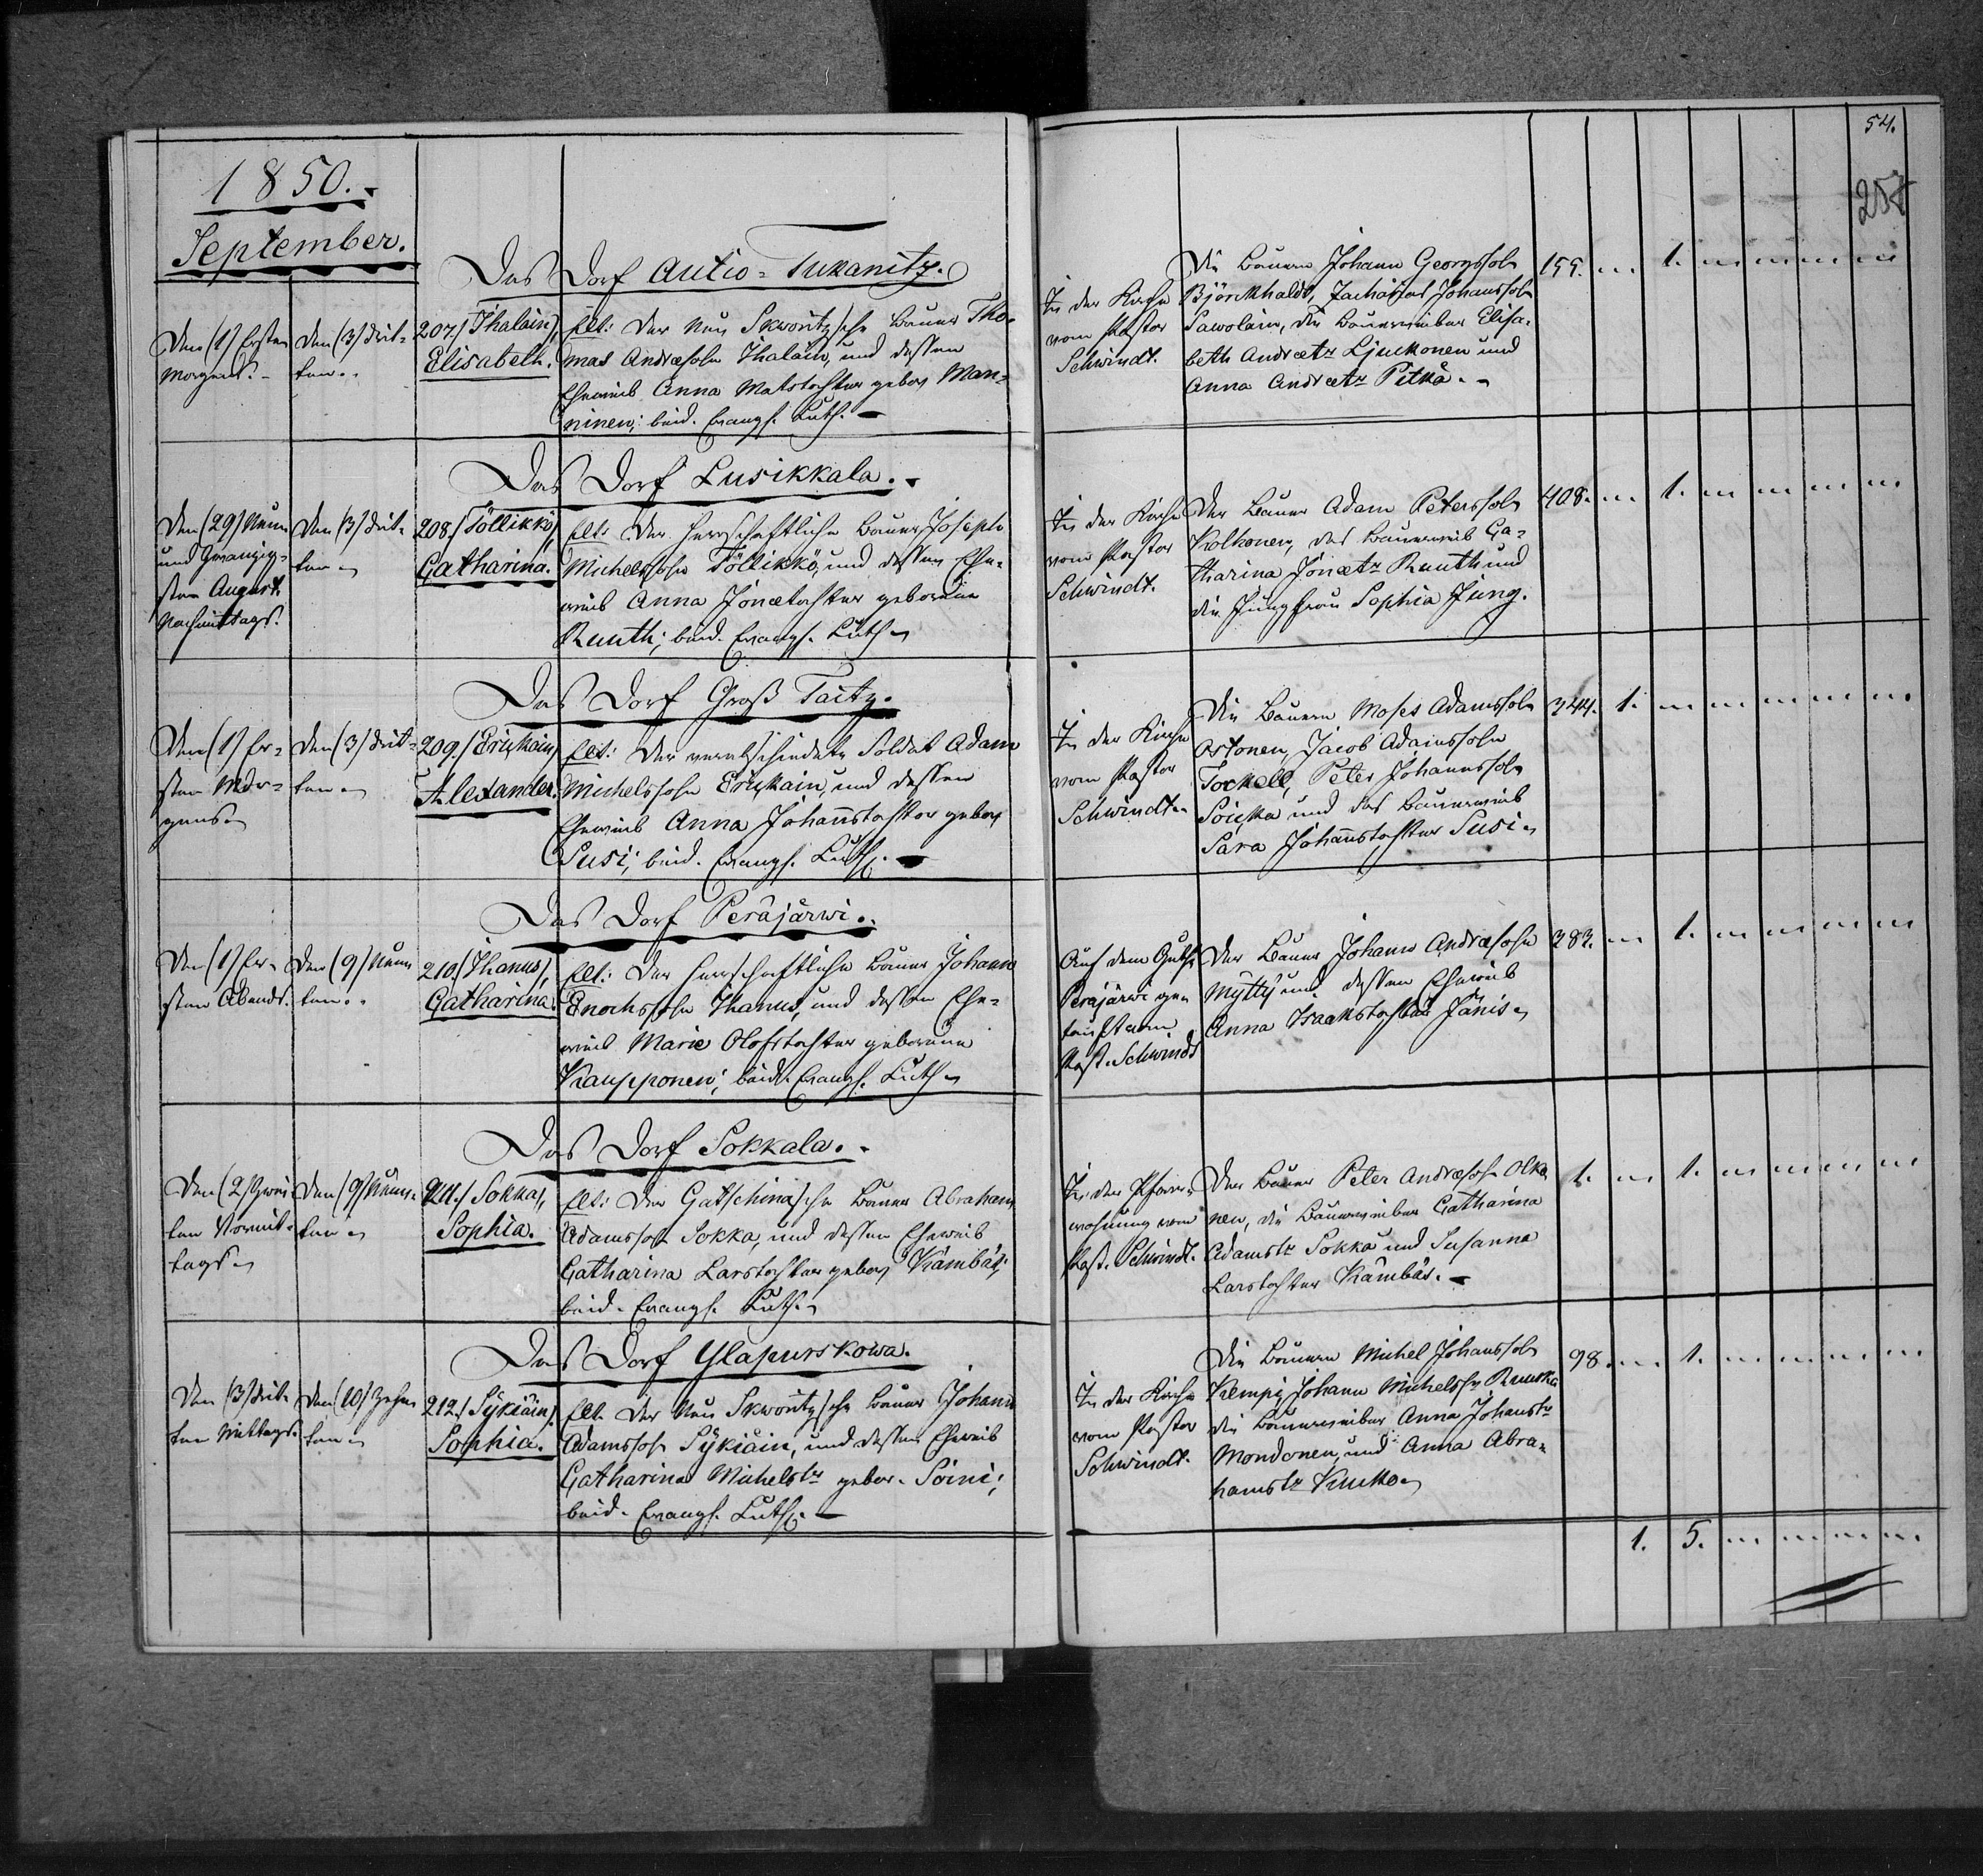 1850.
September.
Das Dorf Autio=Tukanitz.
Den (1) Ersten
Morgens.
Den (3) drit=
ten.
207./ Ihalain,
Elisabeth.
Elt: Der Neu Skworitzsche Bauer Tho=
mas Andræsohn Ihalain, und dessen
Eheweib Anna Matstochter gebor. Man=
ninen; beid. Evangl. Luth.
In der Kirche
vom Pastor
Schwindt.
Die Bauern Johann Georgssohn
Björckhaldt, Zacharias Johanssohn
Sawolain, die Bauerweiber Elisa=
beth Andræetr Ljuckonen und
Anna Andræetr Pitkä.
155. 1.
Das Dorf Lusikkala.
Den (29) Neun
und zwanzig=
sten August
Nachmittags.
Den (3) drit=
ten
208./ Töllikkö,
Catharina.
Elt: Der herrschaftliche Bauer Joseph
Michelssohn Töllikkö, und dessen Ehe=
weib Anna Jonætochter geborene
Ruuth; beid. Evangl. Luth.
In der Kirche
vom Pastor
Schwindt.
Der Bauer Adam Peterssohn
Kolkonen, das Bauerweib Ca=
tharina Jonætr Ruuth und
die Jungfrau Sophia Jung.
408. 1.
Das Dorf Groß Taitz.
Den (1) Er=
sten Mor=
gens.
Den (3) drit=
ten
209./ Eriskain,
Alexander.
Elt: Der verabschiedete Soldat Adam
Michelssohn Eriskain, und dessen
Eheweib Anna Johannstochter gebor.
Susi; beid. Evangl. Luth.
In der Kirche
vom Pastor
Schwindt.
Die Bauern Moses Adamssohn
Ostonen, Jacob Adamssohn
Tockell, Peter Johannssohn
Souka und das Bauerweib
Sara Johannstochter Susi.
344. 1.
Das Dorf Peräjärwi.
Den (1) Er=
sten Abends.
Den (9) Neun
ten.
210./ Ihanus,
Catharina.
Elt: Der herrschaftliche Bauer Johann
Enochssohn Ihanus, und dessen Ehe=
weib Marie Olofstochter geborene
Kaupponen; beid. Evangl. Luth.
Auf dem Guthe
Peräjärwi ge=
tauft vom
Past. Schwindt
Der Bauer Johann Andræsohn
Mÿttÿ und dessen Eheweib
Anna Isaakstochter Jänis.
383. 1.
Das Dorf Sokkala.
Den (2) Zwei=
ten Vormit=
tags.
Den (9) Neun=
ten
211./ Sokka,
Sophia.
Elt: Der Gatschinasche Bauer Abraham
Adamssohn Sokka, und dessen Eheweib
Catharina Larstochter gebor. Kämbäs;
beid. Evangl. Luth.
In der Pfarr=
wohnung vom
Past. Schwindt.
Der Bauer Peter Andræsohn Olko
nen, die Bauerweiber Catharina
Adamstr Sokka und Susanna
Larstochter Kämbäs.
1. 1.
Das Dorf Ylapurskowa.
Den (3) drit=
ten Mittags.
Den (10) Zehn
ten
212./ Sÿkiäin,
Sophia.
Elt. Der Neu Skworitzsche Bauer Johann
Adamssohn Sÿkiäin, und dessen Eheweib
Catharina Michelstr gebor. Soini;
beid. Evangl. Luth.
In der Kirche
vom Pastor
Schwindt.
Die Bauern Michel Johanssohn
Kempi, Johann Michelssn Ruuska
die Bauerweiber Anna Johanstr
Mondonen, und Anna Abra=
hamstr Kuukko
98. 1.
1. 5.
54.